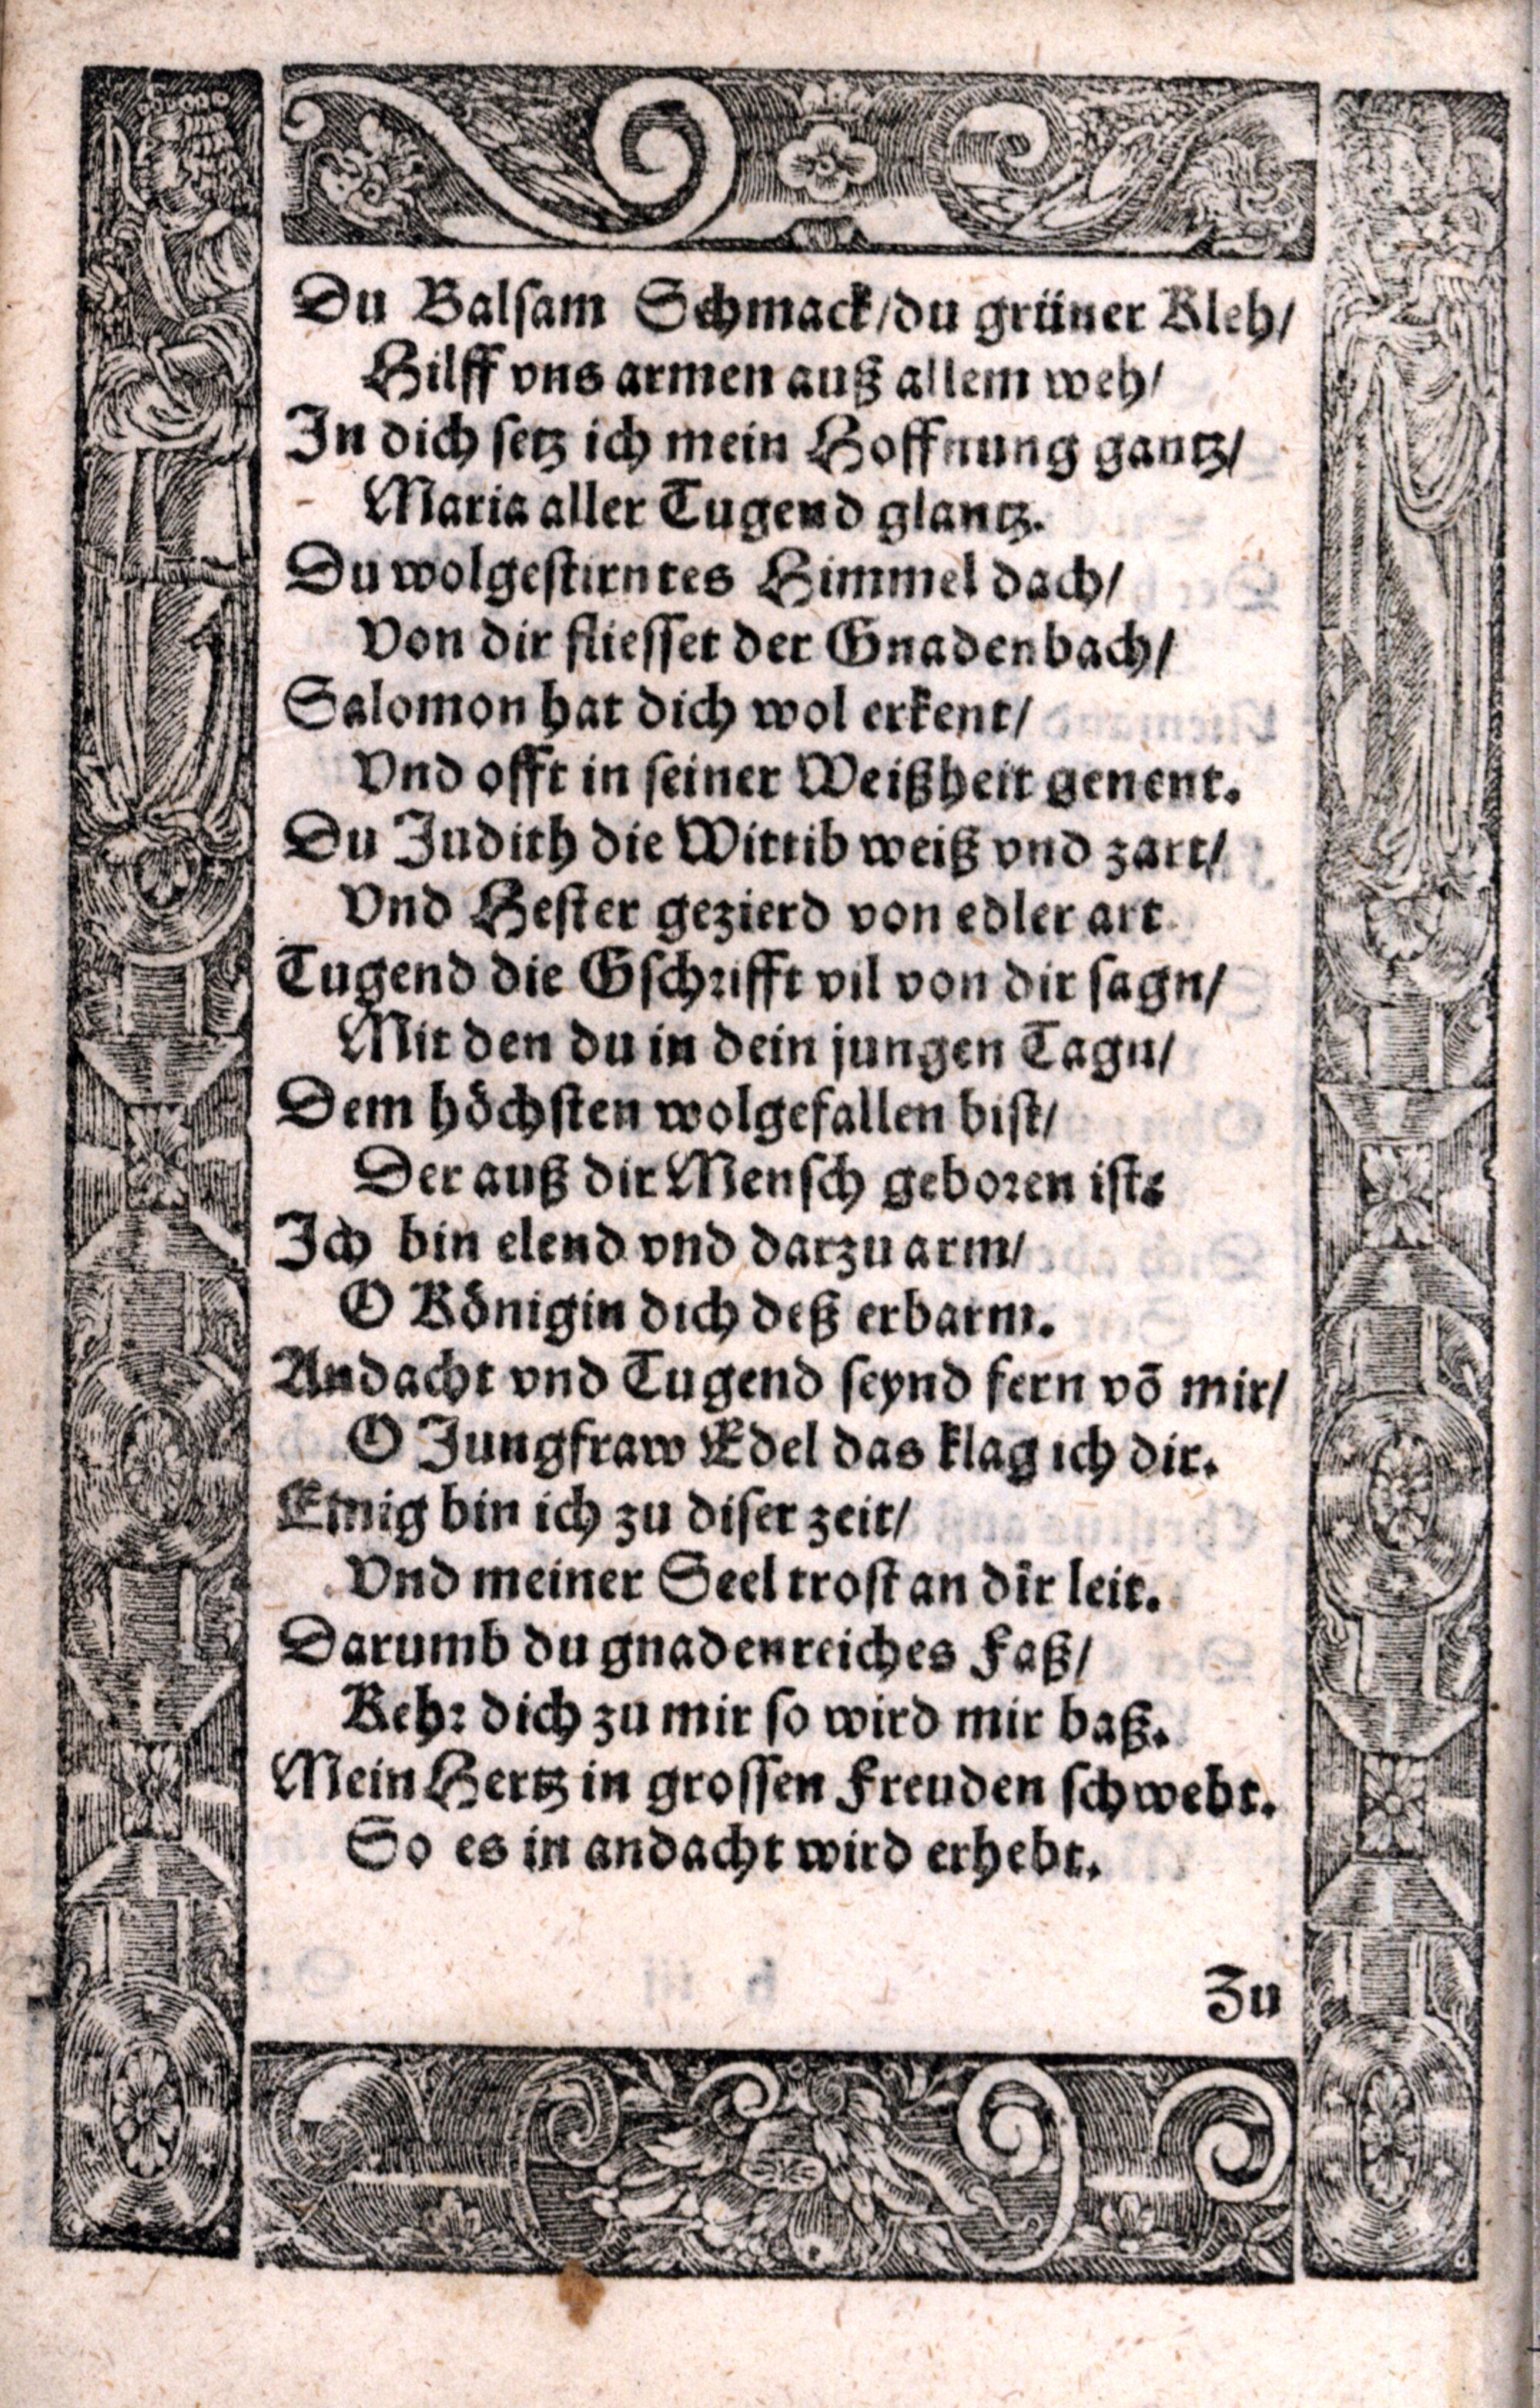 Du Balsam Schmack/du grüner Kleh/
Hilff vns armen auß allem weh/
In dich setz ich mein Hoffnung gantz/
Maria aller Tugend glantz.
Du wolgestirntes Himmel dach/
Von dir fliesset der Gnadenbach/
Salomon hat dich wol erkent/
Vnd offt in seiner Weißheit genent.
Du Judith die Wittib weiß vnd zart/
Vnd Hester gezierd von edler art
Tugend die Gschrifft vil von dir sagn/
Mit den du in dein jungen Tagn/
Dem höchsten wolgefallen bist/
Der auß dir Mensch geboren ist.
Ich bin elend vnd darzu arm/
O Königin dich deß erbarm.
Andacht vnd Tugend seynd fern võ mir/
O Jungfraw Edel das klag ich dir.
Einig bin ich zu diser zeit/
Vnd meiner Seel trost an dir leit.
Darumb du gnadenreiches Faß/
Kehr dich zu mir so wird mir baß.
Mein Hertz in grossen Freuden schwebt.
So es in andacht wird erhebt.
Zu